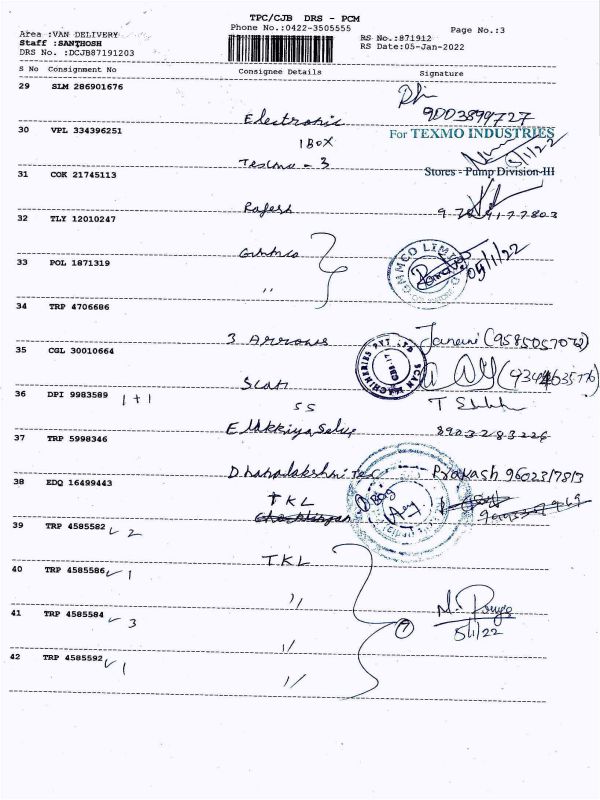 TPC/CJB DRS - PCM
Phone No.:0422-3505555
Page No.:3
Area :VAN DELIVERY
Staff :SANTHOSH
DRS No. :DCJB87191203
RS No.:871912
RS Date:05-Jan-2022
S No Consignment No Consignee Details Signature
29 SLM 286901676
Electronic
9003899727
30 VPL 334396251
1 BOX
For TEXMO INDUSTRIES
5/1/22
Texmo - 3
Stores - Pump Division-III
31 COK 21745113
Rajesh
32 TLY 12010247
33 POL 1871319
"
05/1/22
34 TRP 4706686
3 Arrows
35 CGL 30010664
Scan
SCAN MACHINERIES PVT LTD
36 DPI 9983589 1+1
SS
Ellakkiya Selvi
8903283226
37 TRP 5998346
Dhanalakshmi Tex
Prakash 9602317813
38 EDQ 16499443
TKL
39 TRP 4585582 2
TKL
40 TRP 4585586 1
"
41 TRP 4585584 3
"
7
5/1/22
42 TRP 4585592 1
"